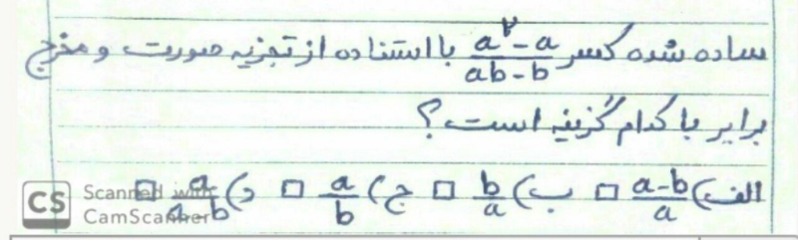 ساده شده کسر (a²-a)/(ab-b) با استفاده از تجزیه صورت و مخرج
برابر با کدام گزینه است؟
الف) (a-b)/a □ ب) b/a □ ج) a/b □ د) a/(a-b) □
CS Scanned with
CamScanner